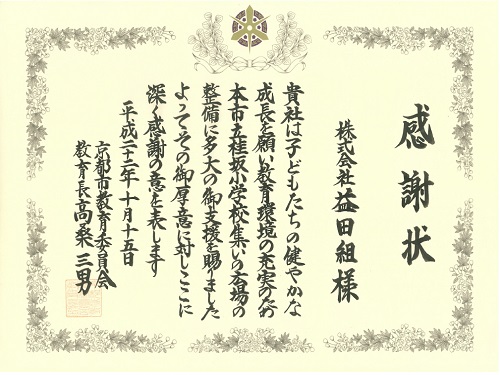 感謝状
株式会社益田組様
貴社は子どもたちの健やかな
成長を願い教育環境の充実のため
本市立桂坂小学校集いの広場の
整備に多大の御支援を賜りました
よってその御厚意に対しここに
深く感謝の意を表します
平成二十二年十月十五日
京都市教育委員会
教育長高桑三男